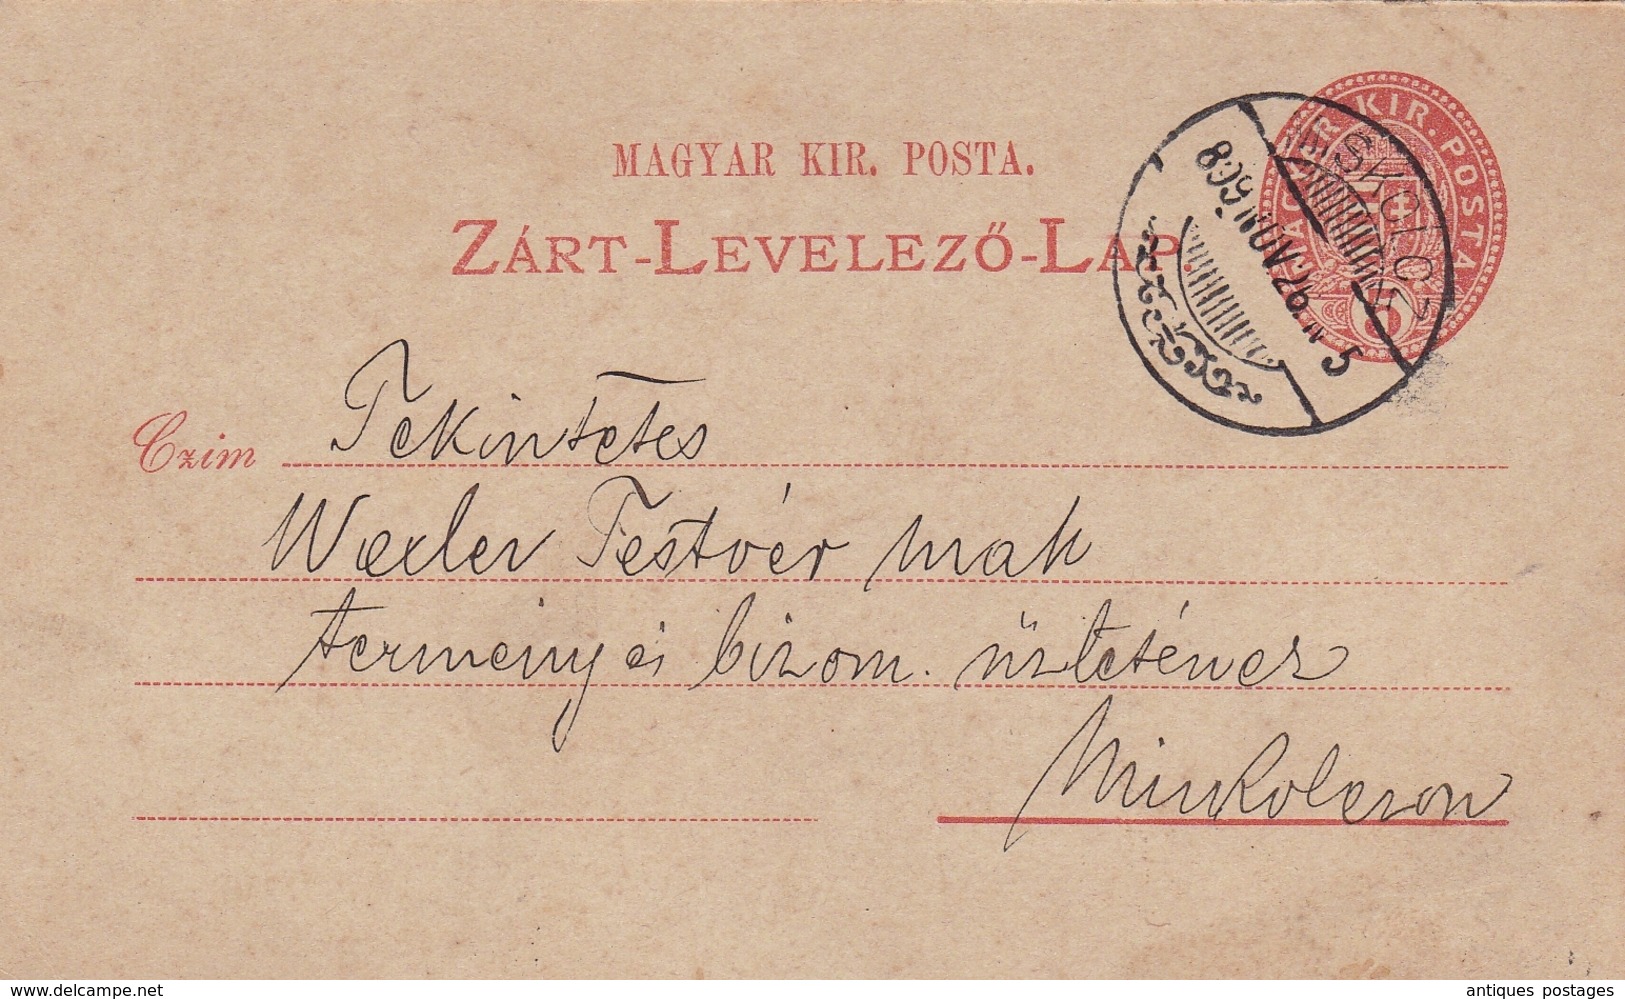 MAGYAR KIR. POSTA.
ZÁRT-LEVELEZŐ-LAP.
MAGYAR KIR. POSTA
5
MISKOLCZ
899 NOV. 26 5
Czim
Tekintetes
Wexler Testvér urak
termény és bizom. üzletének
Miskolczon
www.delcampe.net
antiques postages